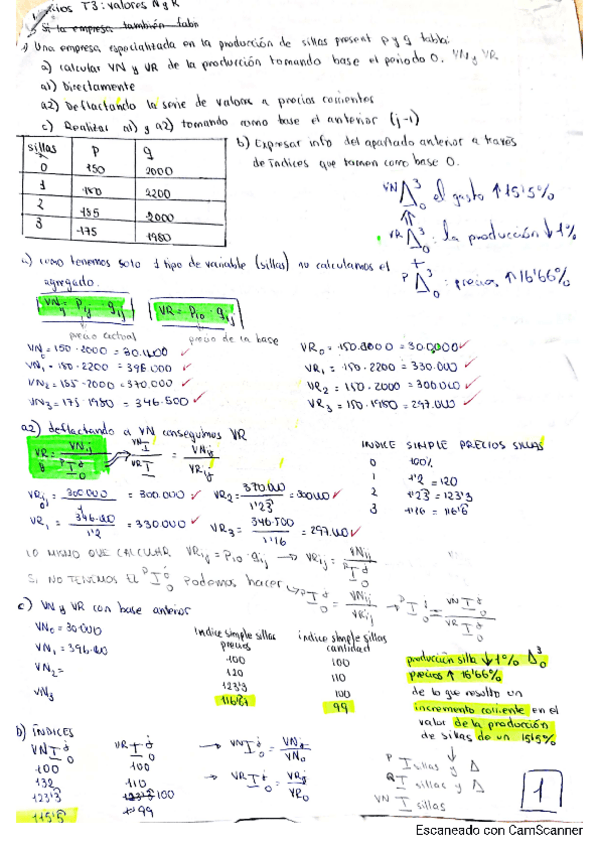 T3: valores N y R
Si la empresa también fabri
Una empresa especializada en la producción de sillas present p y q tabla:
a) calcular VN y VR de la producción tomando base el periodo 0. VN y VR
a1) Directamente
a2) Deflactando la serie de valores a precios corrientes
c) Realizar a1) y a2) tomando como base el anterior (j-1)
sillas P q
0 150 2000
1 180 2200
2 185 2000
3 175 1980
b) Expresar info del apartado anterior a través
de índices que tomen como base 0.
VN Δ³₀ el gasto ↑15'5%
⇑
VR Δ³₀: la producción ↓1%
+
P Δ³₀: precios ↑16'66%
a) como tenemos solo 1 tipo de variable (sillas) no calculamos el
agregado.
VN = Pij · qij
VR = Pi0 · qij
precio actual
precio de la base
VN₀ = 150 · 2000 = 30.000 ✓
VN₁ = 150 · 2200 = 396.000 ✓
VN₂ = 185 · 2000 = 370.000 ✓
VN₃ = 175 · 1980 = 346.500 ✓
VR₀ = 150 · 2000 = 300.000 ✓
VR₁ = 150 · 2200 = 330.000 ✓
VR₂ = 150 · 2000 = 300.000 ✓
VR₃ = 150 · 1980 = 297.000 ✓
a2) deflactando a VN conseguimos VR
INDICE SIMPLE PRECIOS SILLAS
0 100%
1 1'2 = 120
2 1'23 = 123'3
3 1'16 = 116'6
= 300.000 ✓
VR₁ = = 330000 ✓
VR₂ = 370.000 / 1'23 = 300.000 ✓
VR₃ = 346.500 / 1'16 = 297.000 ✓
LO MISMO QUE CALCULAR VRij = Pi0 · qij → VRij =
SI NO TENEMOS EL podemos hacer
c) VN y VR con base anterior
VN₀ = 30.000
VN₁ = 396.000
VN₂ =
VN₃
indice simple sillas
precios
100
120
123'3
116'67
indice simple sillas
cantidad
100
110
100
99
producción silla ↓1% Δ³₀
precios ↑ 16'66%
de lo que resulta un
incremento corriente en el
valor de la producción
de sillas de un 15'5%
b) ÍNDICES
100
132
123'3
115'5
100
110
100
99
P I sillas y Δ
Q I sillas y Δ
VN I sillas
1
Escaneado con CamScanner